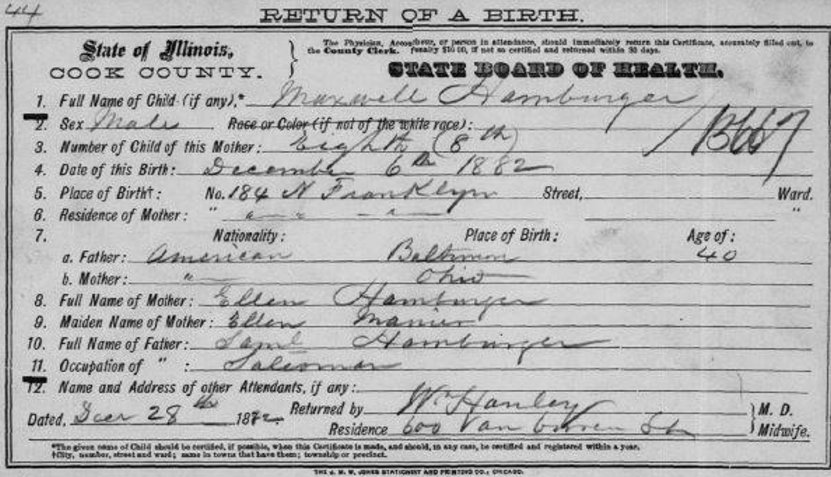 44
RETURN OF A BIRTH.
State of Illinois,
COOK COUNTY.
The Physician, Accoucheur, or person in attendance, should immediately return this Certificate, accurately filled out, to
the County Clerk. penalty $10 00, if not so certified and returned within 30 days.
STATE BOARD OF HEALTH.
1. Full Name of Child (if any).* Maxwell Hamburger
2. Sex Male Race or Color (if not of the white race):
13667
3. Number of Child of this Mother: Eighth (8th)
4. Date of this Birth: December 6th 1882
5. Place of Birth†: No. 184 N Franklyn Street, Ward.
6. Residence of Mother: " " "
7. Nationality: Place of Birth: Age of:
a. Father: American Baltimore 40
b. Mother: " Ohio
8. Full Name of Mother: Ellen Hamburger
9. Maiden Name of Mother: Ellen
10. Full Name of Father: Saml Hamburger
11. Occupation of " : Salesman
12. Name and Address of other Attendants, if any:
Dated, Decr 28th 1882. Returned by Wm Hanley M. D.
Residence 600 Van Buren St Midwife.
*The given name of Child should be certified, if possible, when this Certificate is made, and should, in any case, be certified and registered within a year.
†City, number, street and ward; same in towns that have them; township or precinct.
THE J. M. W. JONES STATIONERY AND PRINTING CO., CHICAGO.